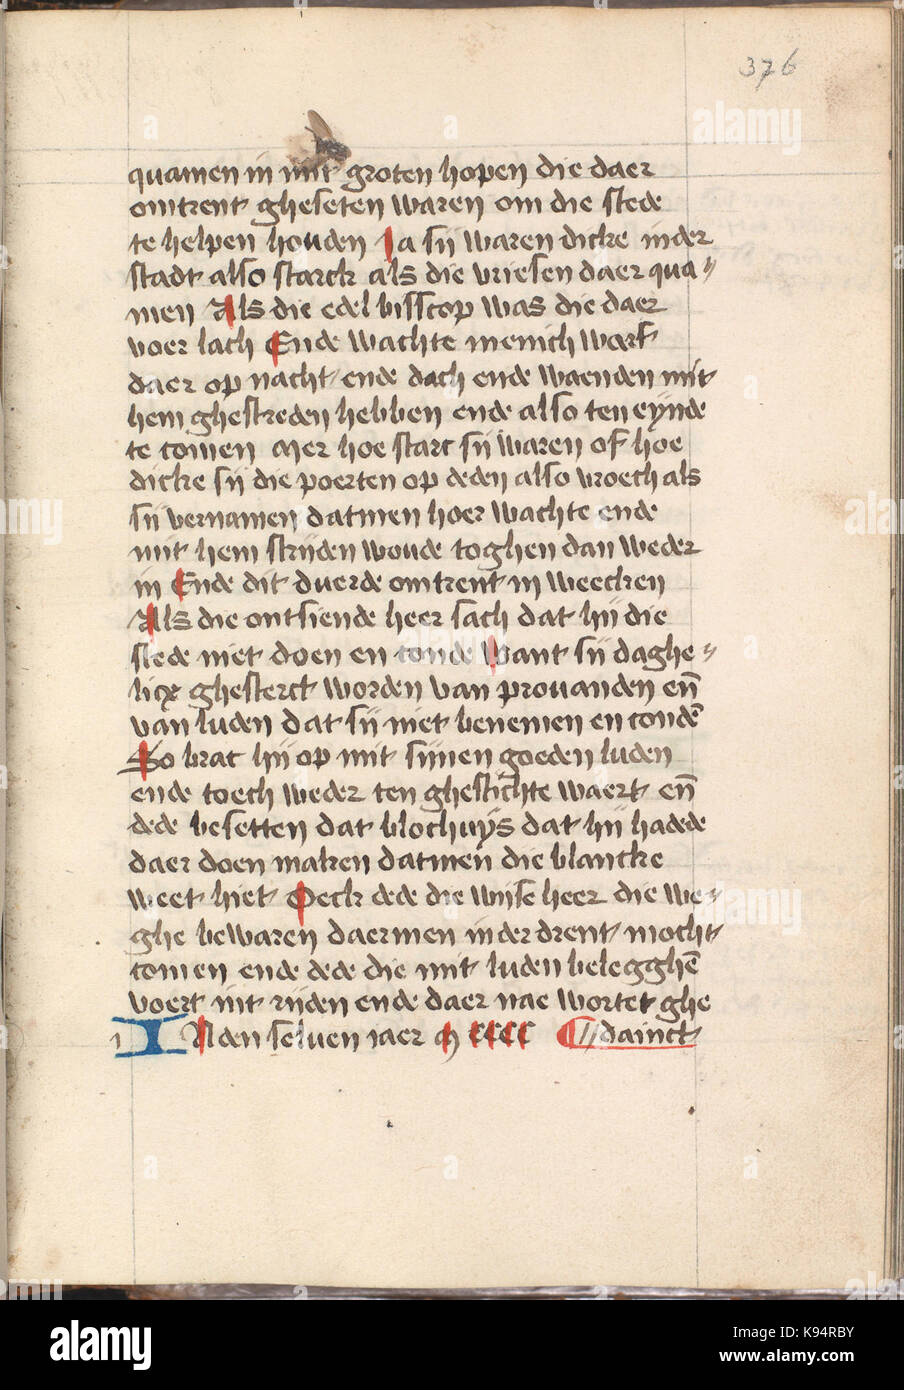 376
quamen in mit groten hopen die daer
omtrent gheseten waren om die stede
te helpen houden Ja sij waren dicke inder
stadt also starck als die vriesen daer qua〃
men Als die edel bisscop was die daer
voer lach Ende wachte menich werf
daer op nacht ende dach ende waenden mit
hem ghestreden hebben ende also ten eynde
te comen Mer hoe starc sij waren of hoe
dicke sij die poerten op deden also vroech als
sij vernamen datmen hoer wachte ende
mit hem strijden woude toghen dan weder
in Ende dit duerde omtrent in weecken
Als die ontsiende heer sach dat hij die
stede niet doen en conde Want sij daghe〃
licx ghesterct worden van prouanden en̄
van luden dat sij niet benemen en conde᷑
So brac hij op mit sijnen goeden luden
ende toech weder ten ghestichte waert en̄
dede besetten dat blochuys dat hij hadde
daer doen maken datmen die blancke
weet hiet Oeck dede die wijse heer die we〃
ghe bewaren daermen inder drent mocht
comen ende dede die mit luden belegghē
voert wt rijden ende daer nae wortet ghe
IN den seluen iaer M CCCC // dainct
a alamy
alamy
Image ID: K94RBY
www.alamy.com